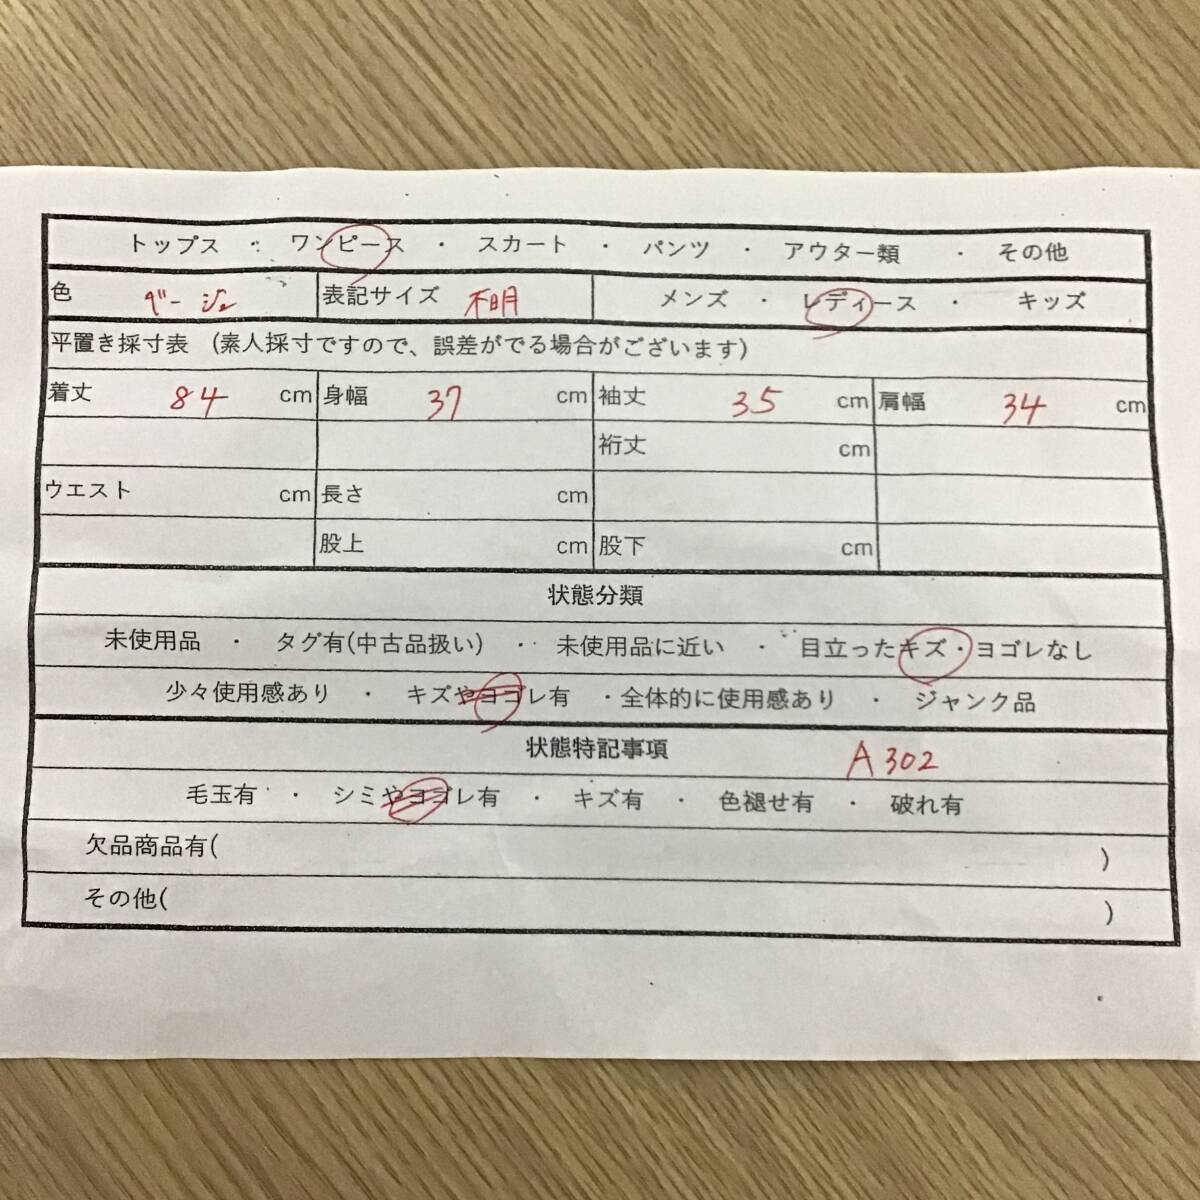 トップス ・ ワンピース ・ スカート ・ パンツ ・ アウター類 ・ その他
色 ベージュ 表記サイズ 不明 メンズ ・ レディース ・ キッズ
平置き採寸表 (素人採寸ですので、誤差がでる場合がございます)
着丈 84 cm 身幅 37 cm 袖丈 35 cm 肩幅 34 cm
裄丈 cm
ウエスト cm 長さ cm
股上 cm 股下 cm
状態分類
未使用品 ・ タグ有(中古品扱い) ・ 未使用品に近い ・ 目立ったキズ・ヨゴレなし
少々使用感あり ・ キズやヨゴレ有 ・全体的に使用感あり ・ ジャンク品
状態特記事項 A302
毛玉有 ・ シミやヨゴレ有 ・ キズ有 ・ 色褪せ有 ・ 破れ有
欠品商品有( )
その他( )